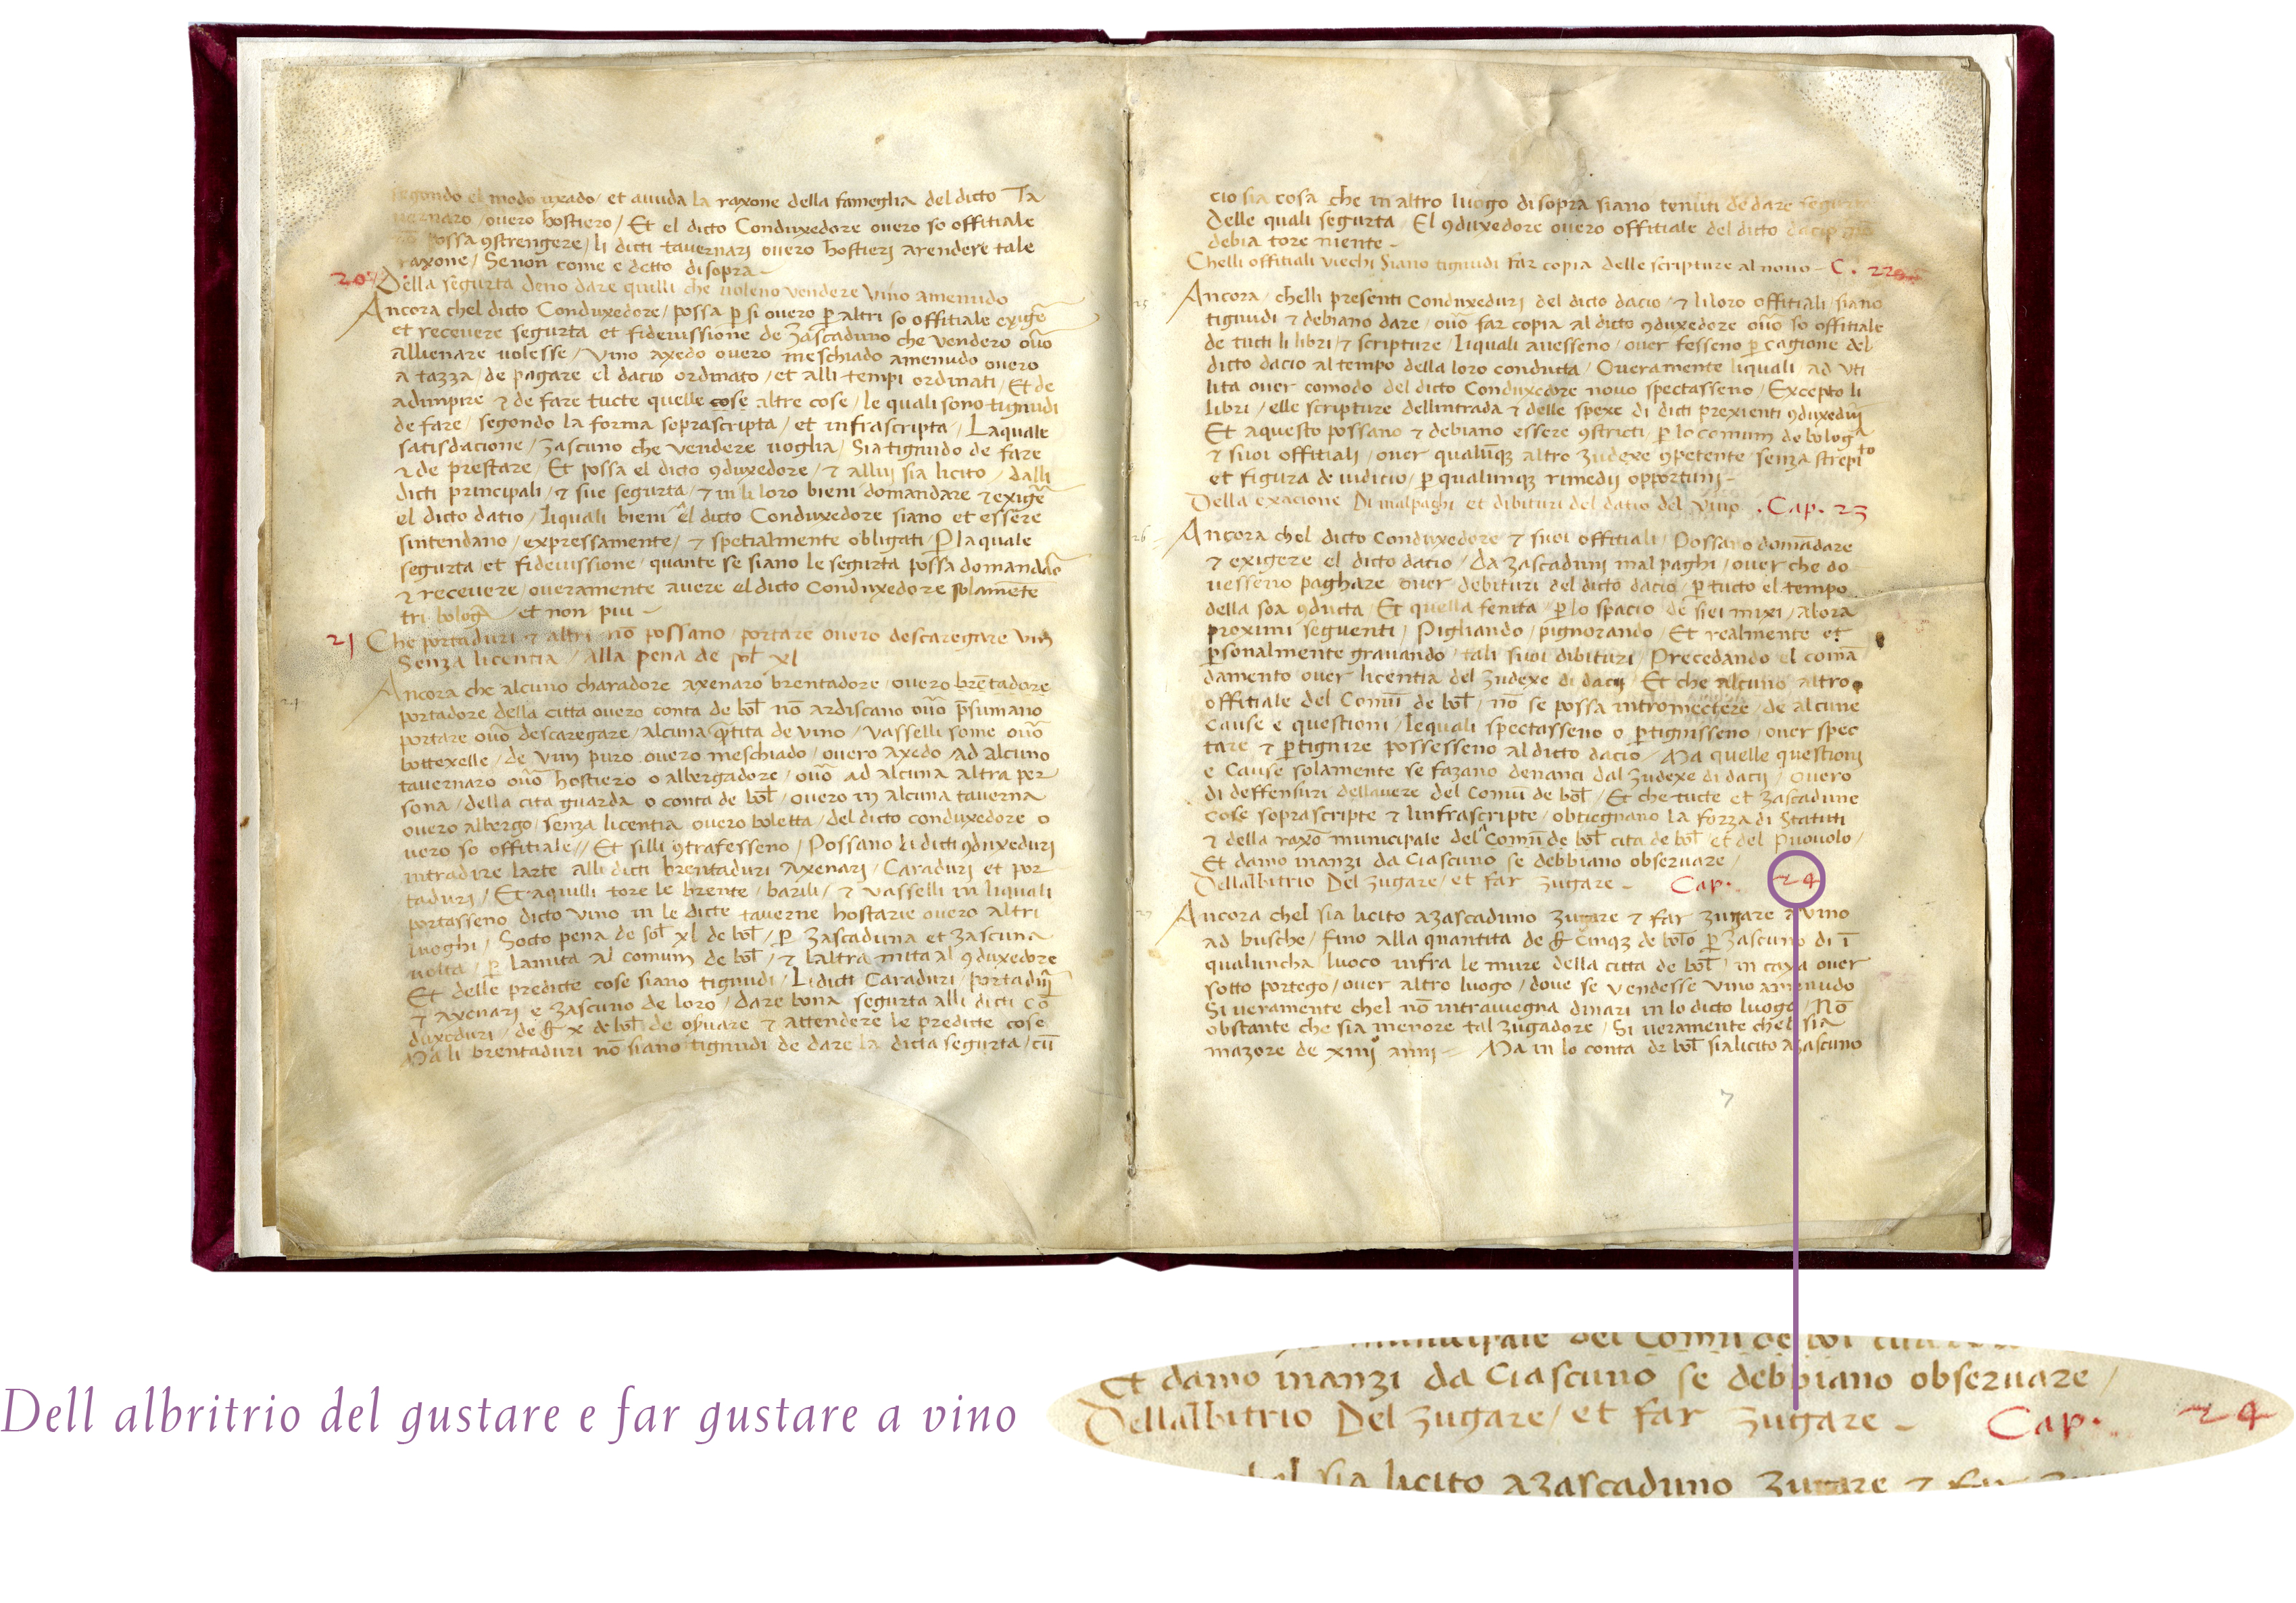 segondo el modo uxado / et auuda la raxone della fameglia del dicto Ta
uernaro / ouero hostiero / Et el dicto Conduxedore ouero so offitiale
possa 9strengere / li dicti tauernarj ouero hostierj arendere tale
raxone / Senon come e detto disopra -
20 Della segurta deno dare quilli che uoleno vendere Vino amenudo
Ancora chel dicto Conduxedore / possa p si ouero p altri so offitiale exigẽ
et receuere segurta et fideiussione de Zascaduno che vendero oũo
allienare uolesse / vino axedo ouero meschiado amenudo ouero
a tazza / de pagare el dacio ordinato / et alli tempi ordinati / Et de
adimpire & de fare tucte quelle cose altre cose / le quali sono tignudi
de fare / segondo la forma soprascripta / et infrascripta / Laquale
satisdacione / zascuno che vendere uoglia / Sia tignudo de fare
& de prestare / Et possa el dicto 9duxedore / & alluj sia licito / dalli
dicti principali / & sue segurta / & in li loro bieni domandare & exigẽ
el dicto datio / liquali bieni el dicto Conduxedore siano et essere
sintendano / expressamente / & spetialmente obligati / P laquale
segurta et fideiussione / quante se siano le segurta possa domandar
& receuere / oueramente auere el dicto Conduxedore solamẽte
tri bolog / et non piu -
21 Che portaduri & altri nõ possano portare ouero descaregare vin
Senza licentia / Alla pena de sol xl
24 Ancora che alcuno charadore axenaro brentadore / ouero brẽtadore
portadore della citta ouero conta de bol nõ ardiscano oũo psumano
portare oũo descaregare / alcuna qtita de vino / vasselli some oũo
bottexelle / de vin puro ouero meschiado / ouero axedo / ad alcuno
tauernaro oũo hostiero o albergadore / oũo ad alcuna altra per
sona / della cita guarda o conta de bol / ouero in alcuna tauerna
ouero albergo / senza licentia ouero boletta / del dicto conduxedore o
uero so offitiale // Et silli 9trafesseno / Possano li dicti 9duxedurj
intradire larte alli dicti brentaduri axenarj / Caradurj et por
tadurj / Et aquilli tore le brente / barili / & vasselli in liquali
portasseno dicto vino in le dicte tauerne hostarie ouero altri
luoghi / Socto pena de sol xl de bol / p zascaduna et zascuna
uolta / p lamita al comum de bol / & laltra mita al 9duxedore
Et delle predicte cose siano tignudi / Li dicti Caradurj / portadurj
& axenarj e zascuno de loro / dare bona segurta alli dicti cõ
duxedurj / de x de bol de obuare & attendere le predicte cose
Ma li brentadurj nõ siano tignudi de dare la dicta segurta / cũ
cio sia cosa che in altro luogo disopra siano tenuti de dare segurta
Delle quali segurta / El 9duxedore ouero offitiale del dicto dacio
debia tore niente -
Chelli offitiali viechi Siano tignudi far copia delle scripture al nouo - C. 22
25 Ancora / chelli presenti Conduxedurj del dicto dacio / & li loro offitiali / siano
tignudi & debiano dare / oũo far copia al dicto 9duxedore oũo so offitiale
de tucti li libri / & scripture / Liquali auesseno / ouer fesseno p cagione del
dicto dacio al tempo della loro conducta / Oueramente liquali ad vti
lita ouer comodo del dicto Conduxedore nouo spectasseno / Excepto li
libri / elle scripture dellintrada & delle spexe di dicti prexienti 9duxedurj
Et aquesto possano & debiano essere 9stricti / p lo comum de bolog
& suoi offitiali / ouer qualunq altro zudexe 9petente senza strepito
et figura de iudicio / p qualunq rimedij opportuni -
Della exacione Di malpaghi et dibituri del datio del vino . Cap. 23
26 Ancora chel dicto Conduxedore & suoi offitiali / Possano domãdare
& exigere el dicto datio / Da zascadunj mal paghi / ouer che do
uesseno paghare ouer debituri del dicto dacio / p tucto el tempo
della soa 9ducta / Et quella fenita / p lo spacio de siei mixi / alora
proximi seguenti / Pigliando / pignorando / Et realmente et
psonalmente grauando / tali suoi dibituri / Precedando el comã
damento ouer licentia del zudexe di dacij / Et che alcuno altro
offitiale del Comũ de bol / nõ se possa intromectere / de alcune
Cause e questioni / lequali spectasseno o ptignisseno / ouer spec
tare & ptignire possesseno al dicto dacio / Ma quelle questioni
e Cause solamente se fazano denanci dal zudexe di dacij / ouero
di deffensuri dellauere del Comũ de bol / Et che tucte et zascadune
cose soprascripte & linfrascripte / obtiegnano la forza di Statuti
& della raxõ municipale del Comũ de bol cita de bol et del Puouolo /
Et damo inanzi da Ciascuno se debbiano obseruare /
Dellalbitrio Del zugare / et far zugare - Cap. 24
27 Ancora chel sia licito a zascaduno zugare & far zugare a vino
ad busche / fino alla quantita de Cinq de bolo p zascuno di ĩ
qualuncha / luoco infra le mure della citta de bol / in caxa ouer
sotto portego / ouer altro luogo / doue se vendesse vino amenudo
Si ueramente chel nõ intrauegna dinari in lo dicto luogo / Nõ
obstante che sia menore tal zugadore / Si ueramente chel sia
mazore de xiiij anni - Ma in lo conta de bol sia licito a zascuno
7
Dell albritrio del gustare e far gustare a vino
municipale del Comũ de bol cita
Et damo inanzi da Ciascuno se debbiano obseruare /
Dellalbitrio Del zugare / et far zugare - Cap. 24
chel sia licito azascaduno zugare & far